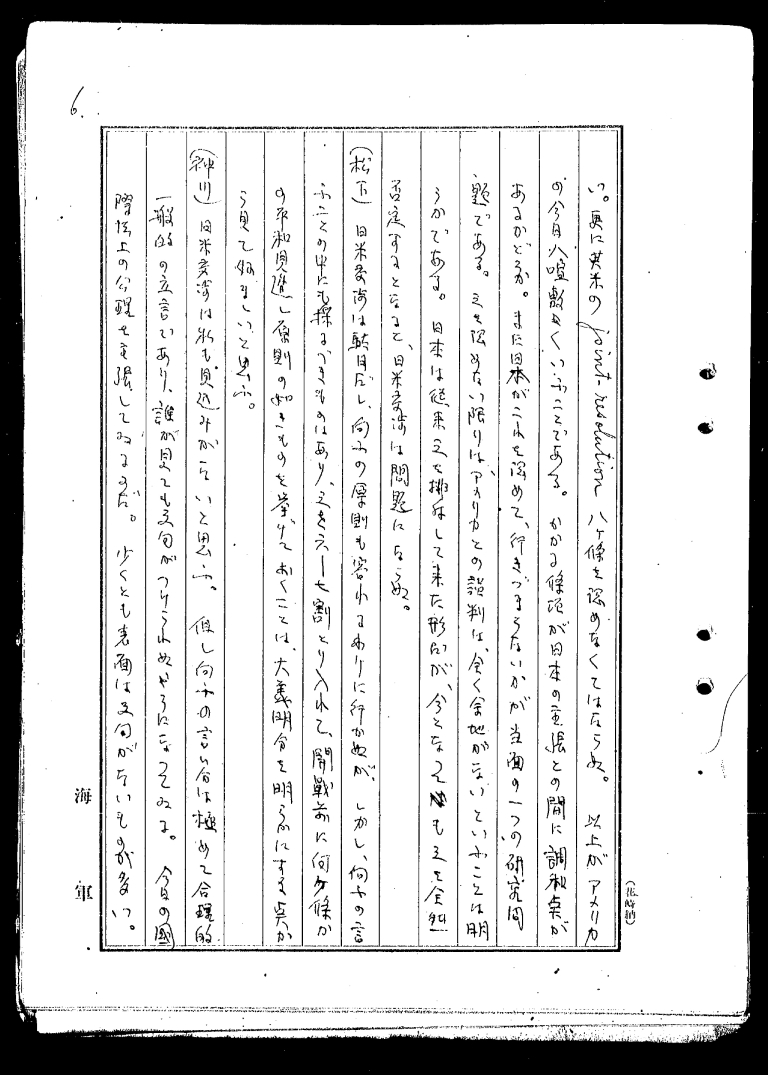 6.
い。更に英米の joint-resolution 八ヶ條を認めなくてはならぬ。 以上がアメリカ
の今日八喧敷くいふことである。かかる條項が日本の主張との間に調和点が
あるかどうか。また日本がこれを認めて、行きづまらないかが当面の一つの研究問
題である。之を認めない限りは、アメリカとの談判は、全く余地がないといふことは明
らかである。日本は従来之を排斥して来た形だが、今となつても之を全然
否定するとなると、日米交渉は問題にならぬ。
(松下) 日米交渉は駄目だし、向ふの原則も容れるわけに行かぬが、しかし、向ふの言
ふことの中にも採るべきものはあり、之を六ー七割とり入れて、開戦前に何ヶ條か
の平和促進し原則の如きものを挙げておくことは、大義明分を明らかにする点か
ら見て好ましいと思ふ。
(神川) 日米交渉は私も見込みがないと思ふ。但し向ふの言分は極めて合理的
一般的の立言であり、誰が見ても文句がつけられぬやうになつてゐる。 今日の國
際法上の公理を主張してゐるのだ。 少くとも表面は文句がないものが多い。
海軍